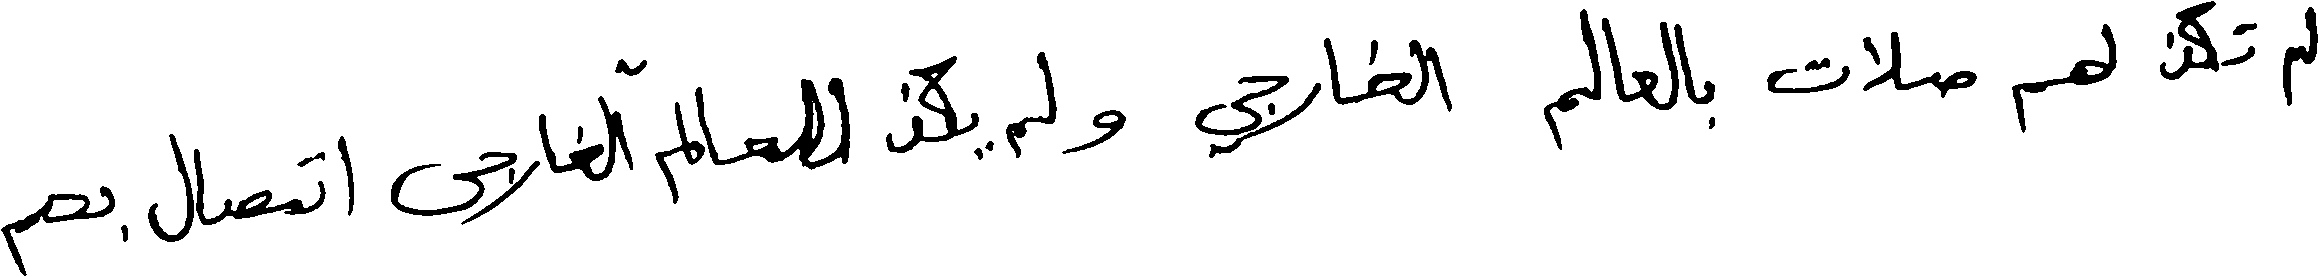 لم تكن لهم صلات بالعالم الخارجي ولم يكن للعالم الخارجى اتصال بهم